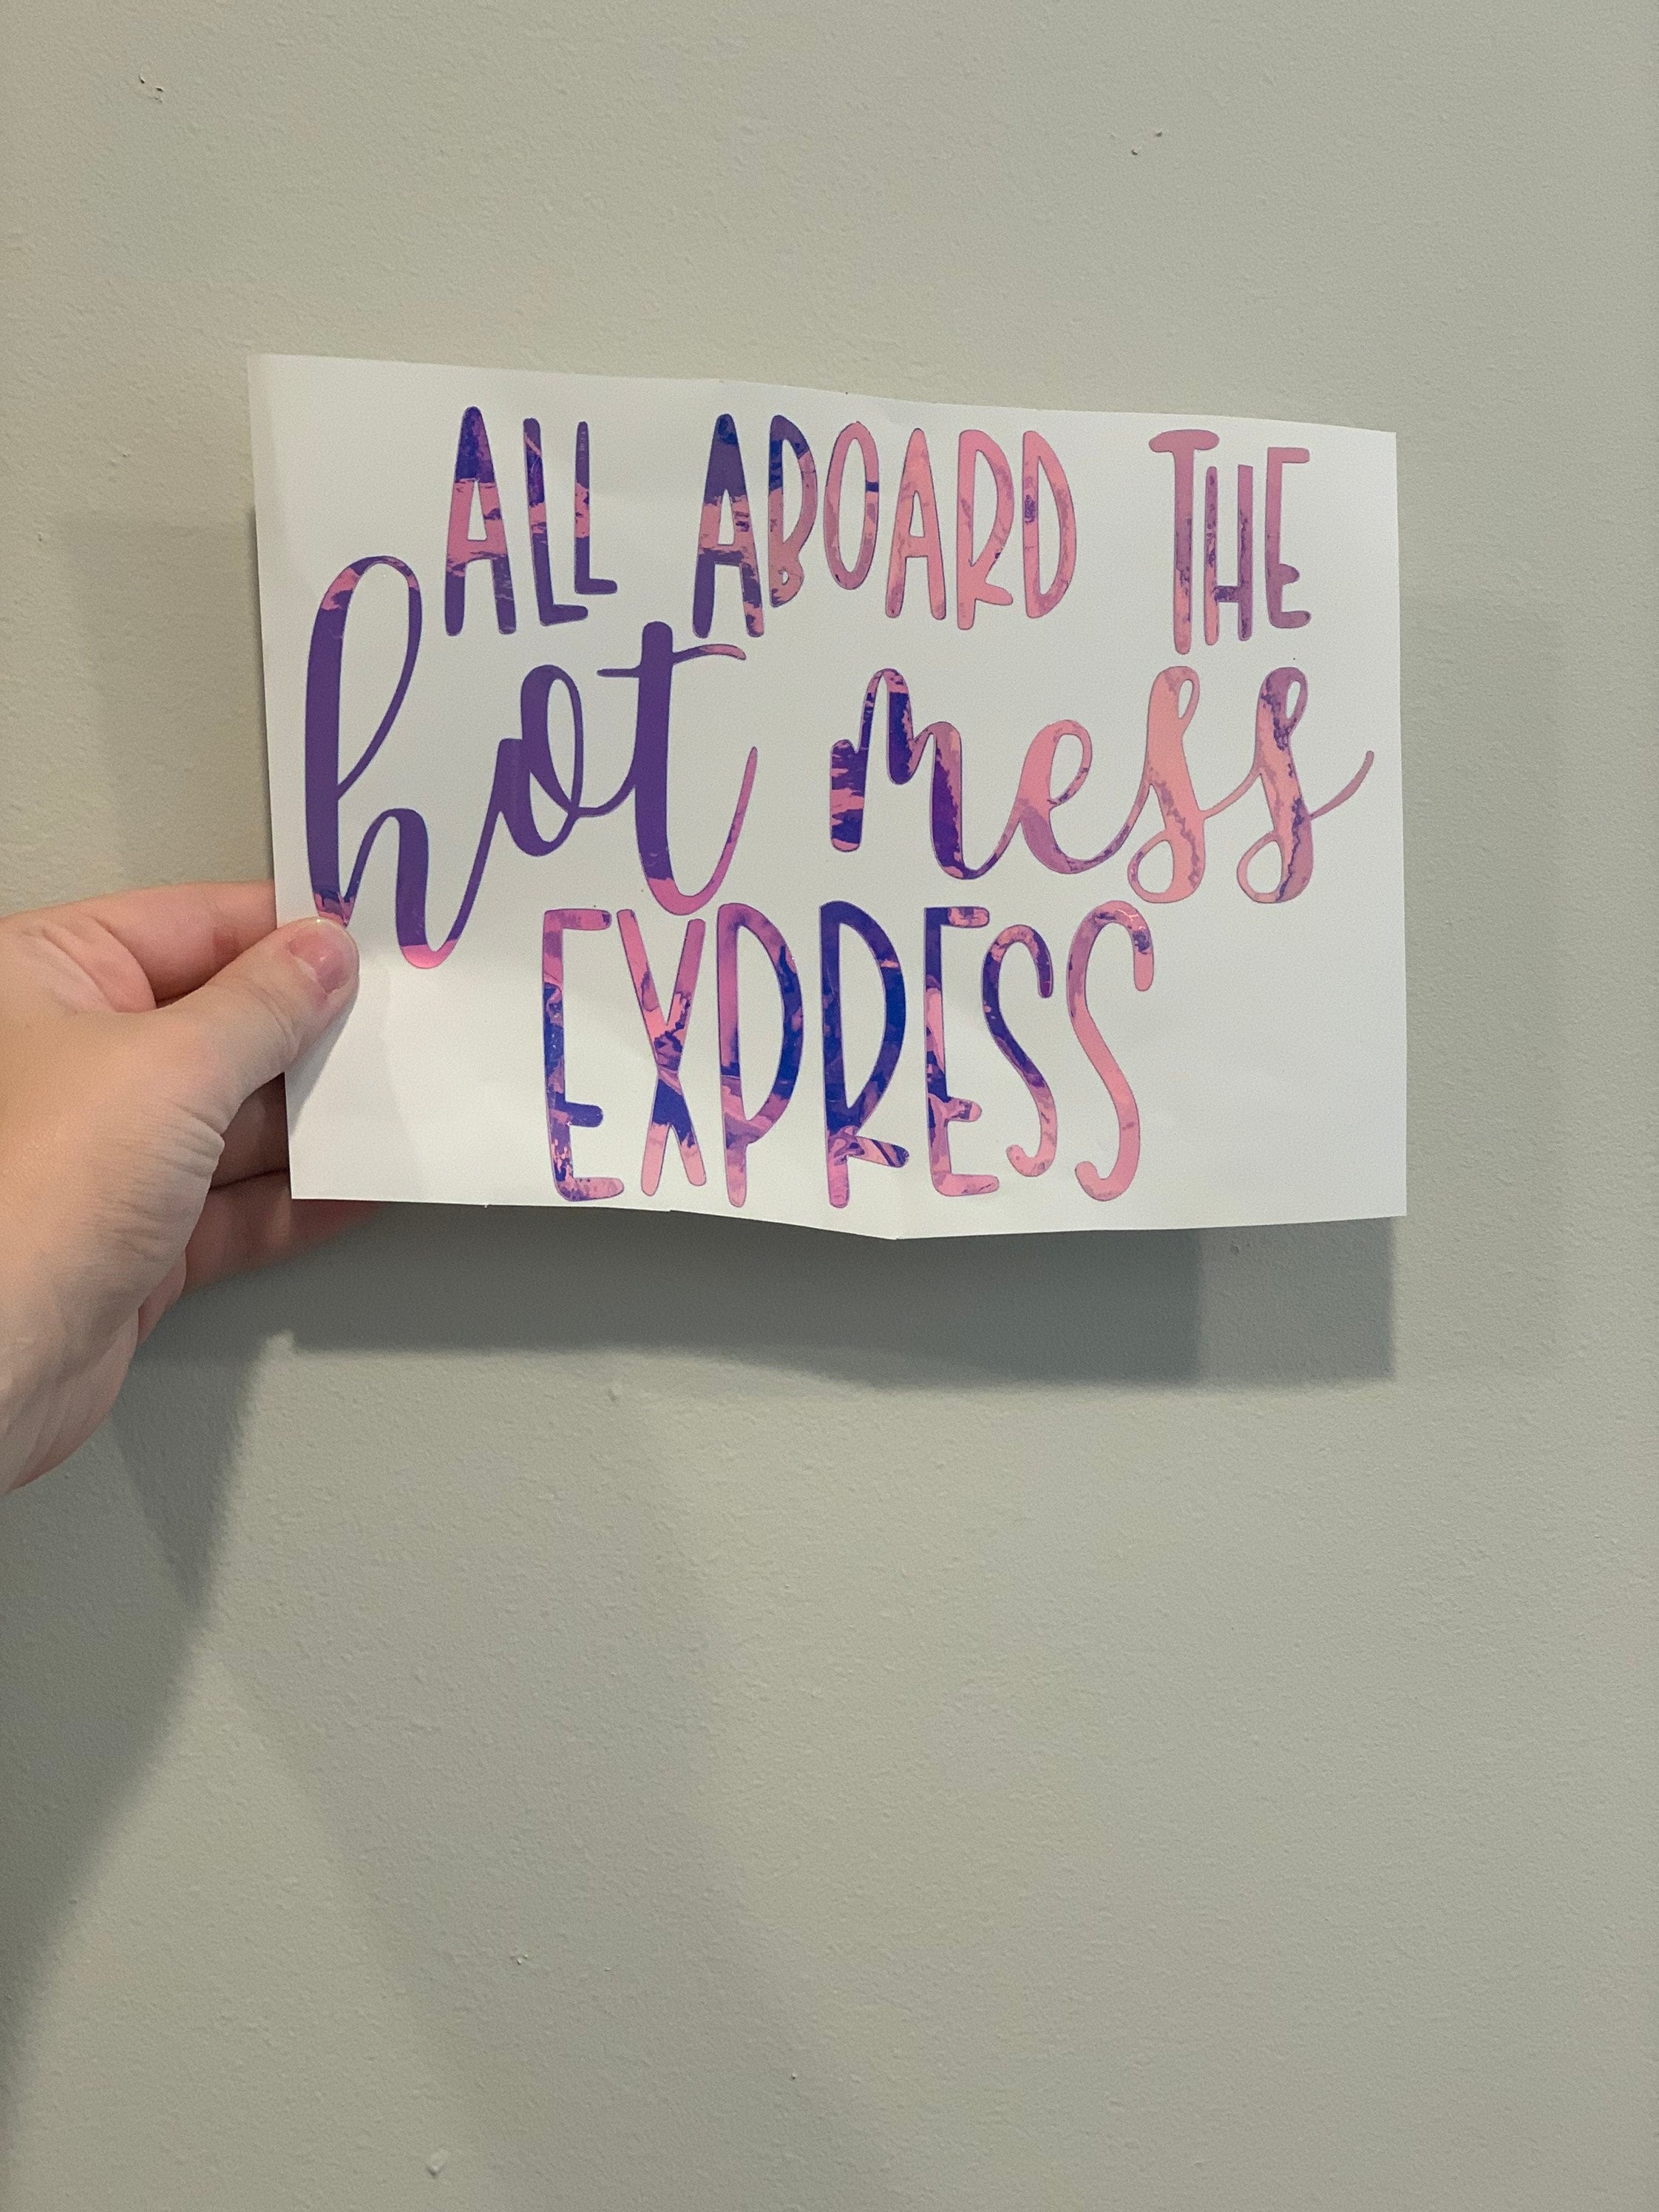 ALL ABOARD THE
hot mess
EXPRESS